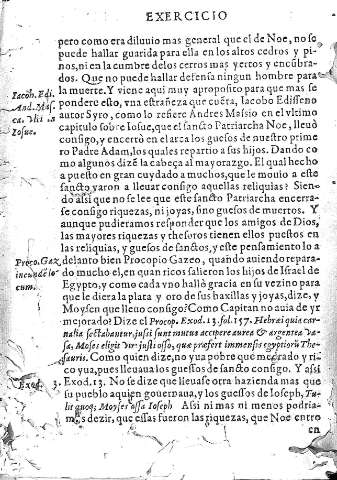 EXERCICIO
pero como era diluvio mas general que el de Noe, no se
puede hallar guarida para ella en los altos cedros y pi-
nos, ni en la cumbre delos cerros mas yertos y encũbra-
dos. Que no puede hallar defensa ningun hombre para
la muerte. Y viene aqui muy aproposito para que mas se
pondere esto, vna estrañeza que cuẽta, Iacobo Edisseno
autor Syro, como lo refiere Andres Massio en el vltimo
capitulo sobre Iosue, que el sancto Patriarcha Noe, lleuó
consigo, y encerrò en el arca los guesos de nuestro prime
ro Padre Adam, los quales repartio a sus hijos. Dando co
mo algunos dizẽ la cabeça al mayorazgo. El qual hecho
a puesto en gran cuydado a muchos, que le mouio a este
sancto varon a lleuar consigo aquellas reliquias? Sien-
do assi que no se lee que este sancto Patriarcha encerra-
se consigo riquezas, ni joyas, sino guesos de muertos. Y
aunque pudieramos responder que los amigos de Dios,
las mayores riquezas y thesoros tienen ellos puestos en
las reliquias, y guesos de sanctos, y este pensamiento lo a
delanto bien Procopio Gazeo, quando auiendo repara-
do mucho el, en quan ricos salieron los hijos de Israel de
Egypto, y como cada vno hallò gracia en su vezino para
que le diera la plata y oro de sus baxillas y joyas, dize, y
Moysen que lleuo consigo? Como Capitan no auia de yr
mejorado? Dize el Procop. Exod. 13. fol. 157. Hebræi quia car-
nalia sectabantur, iussi sunt mutuo accipere aurea & argentea va-
sa, Moses eligit vir iusti ossa, quæ præfert immensis egyptiorũ The-
sauris. Como quien dize, no yua pobre que mejorado y ri
co yua, pues lleuaua los guessos de sancto consigo. Y assi
Exod. 13. No se dize que lleuase otra hazienda mas que
su pueblo aquien gouernaua, y los guessos de Ioseph, Tu-
lit quoq; Moyses ossa Ioseph Assi ni mas ni menos podria-
mos dezir, que essas fueron las riquezas, que Noe entro
en
Iacob. Edi.
And. Mas.
ca. vlt. in
Iosue.
Proco. Gaz
in eundẽ lo-
cum.
Exod. 3.